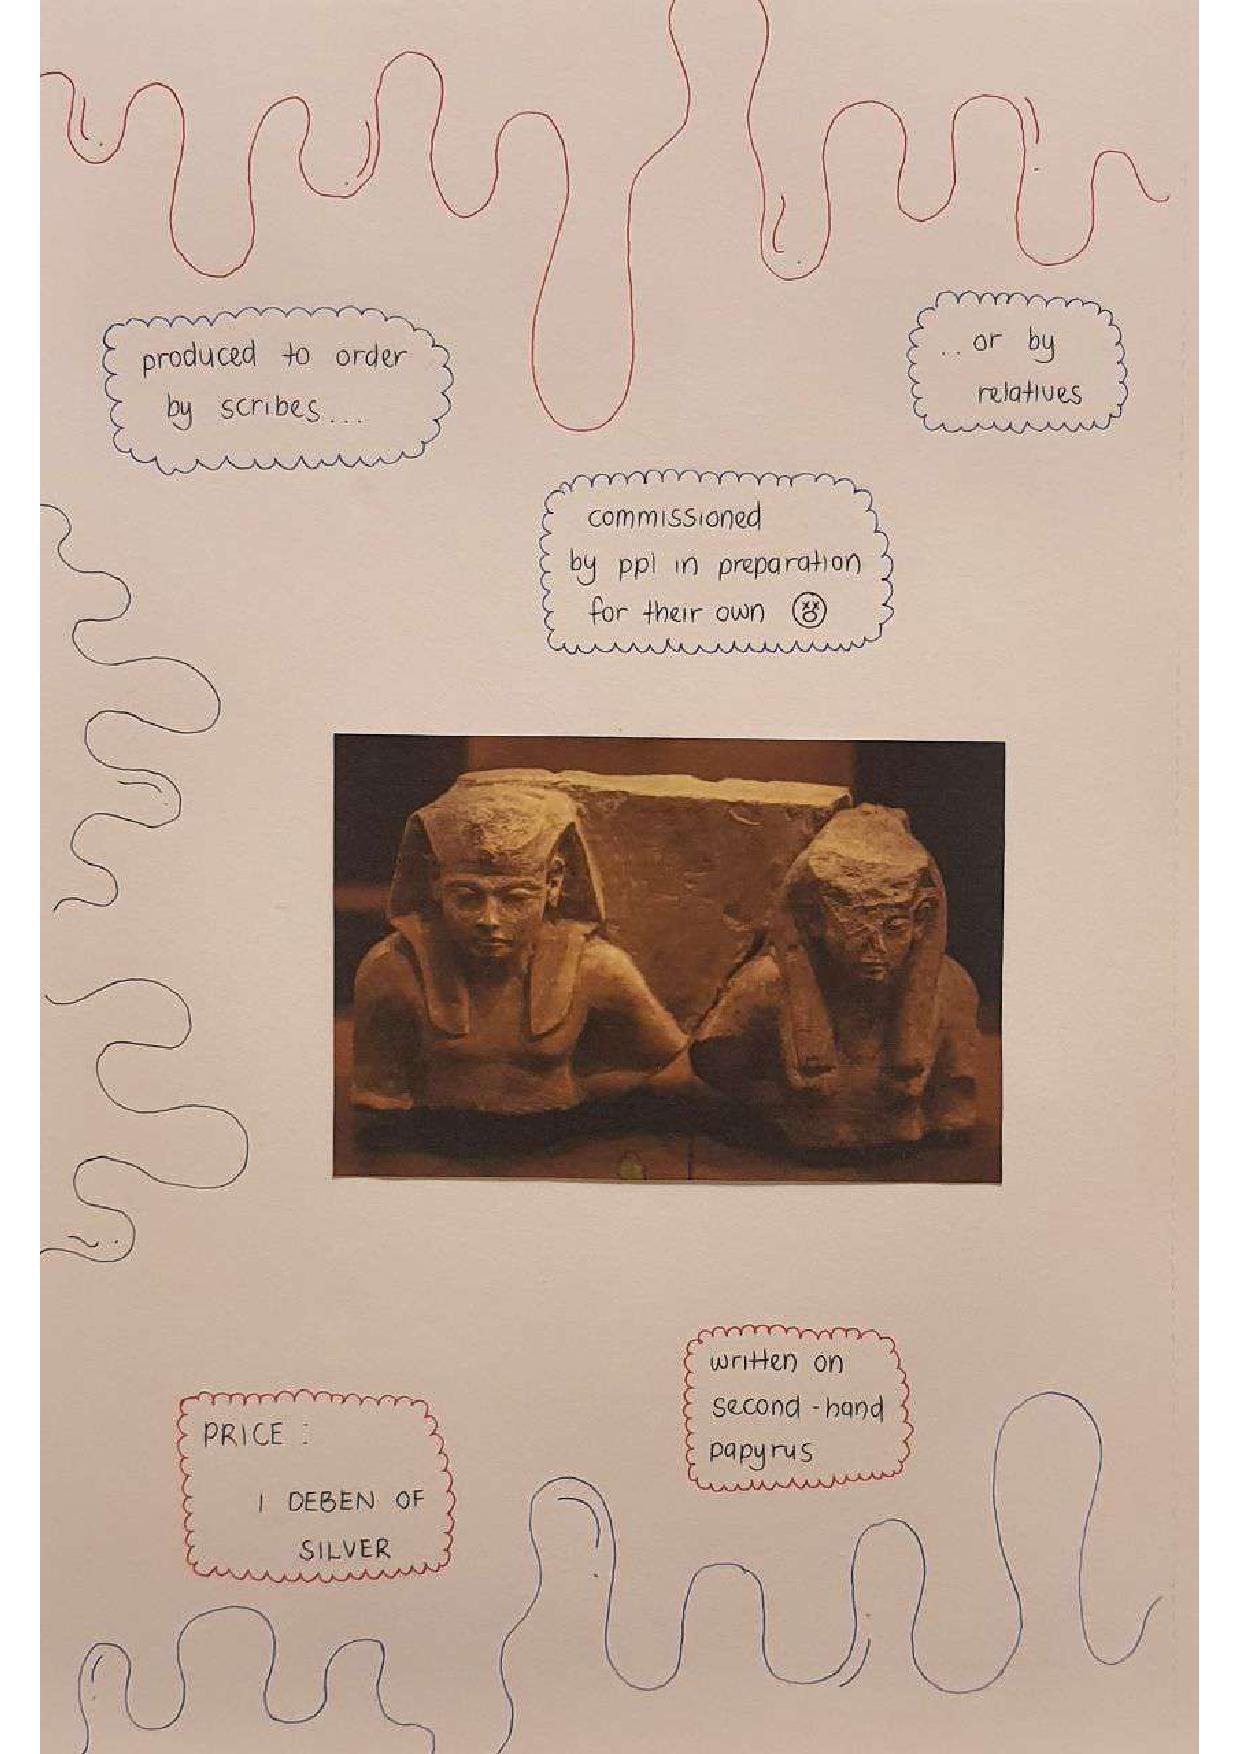 produced to order
by scribes...
..or by
relatives
commissioned
by ppl in preparation
for their own
PRICE :
1 DEBEN OF
SILVER
written on
second-hand
papyrus